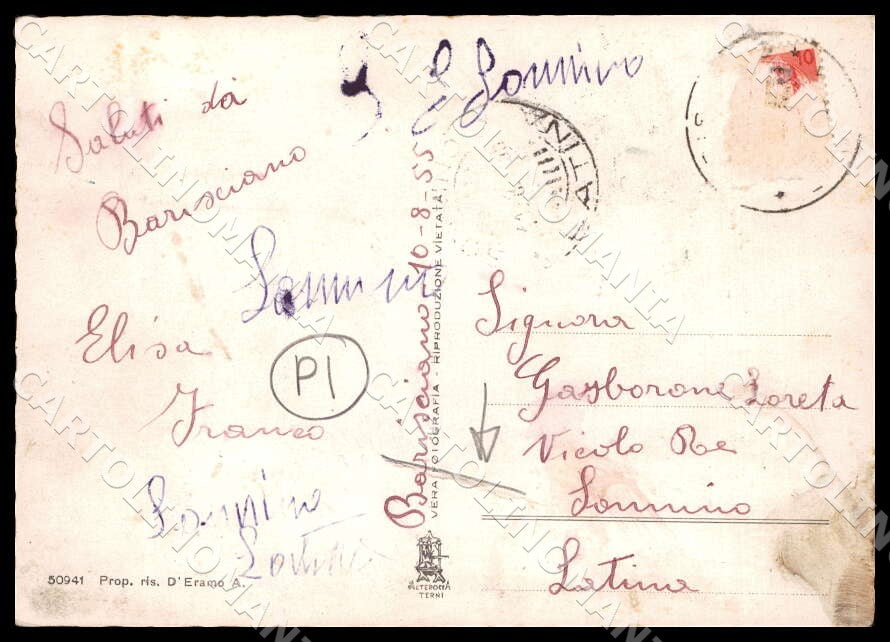 Saluti da
Barisciano
Elisa
Franco
Sonnino
Sonnino
Sonnino
Latina
50941 Prop. ris. D'Eramo A.
Barisciano 10-8-55
VERA FOTOGRAFIA - RIPRODUZIONE VIETATA
P1
ALTEROCCA
TERNI
LATINA
10
Signora
Loreta
Vicolo Re
Sonnino
Latina
CARTOLINOMANIA